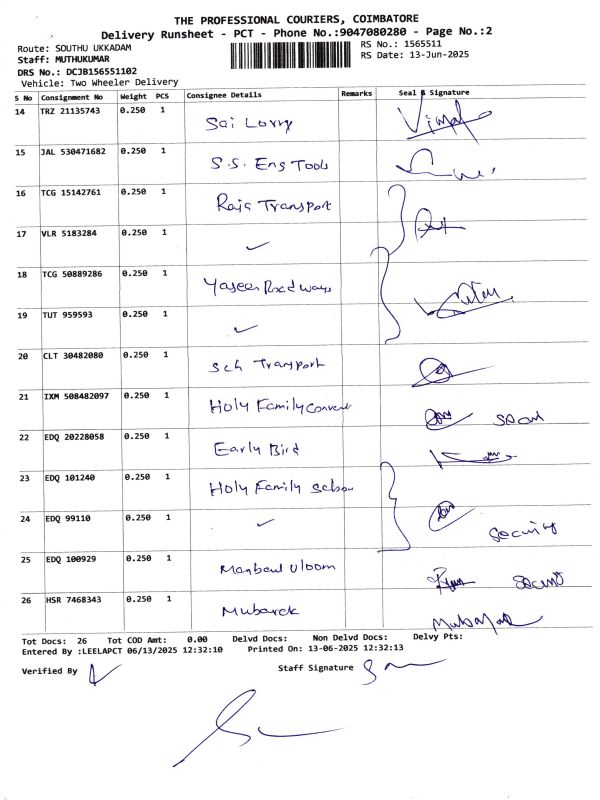 THE PROFESSIONAL COURIERS, COIMBATORE
Delivery Runsheet - PCT - Phone No.:9047080280 - Page No.:2
Route: SOUTHU UKKADAM RS No.: 1565511
Staff: MUTHUKUMAR RS Date: 13-Jun-2025
DRS No.: DCJB156551102
Vehicle: Two Wheeler Delivery
S No Consignment No Weight PCS Consignee Details Remarks Seal & Signature
14 TRZ 21135743 0.250 1 Sai Lorry Vimal
15 JAL 530471682 0.250 1 S.S. Eng Tools
16 TCG 15142761 0.250 1 Raja Transport
17 VLR 5183284 0.250 1 ✓
18 TCG 50889286 0.250 1 Yaseen Roadways
19 TUT 959593 0.250 1 ✓
20 CLT 30482080 0.250 1 Sch Transport
21 IXM 508482097 0.250 1 Holy Family Convent
22 EDQ 20228058 0.250 1 Early Bird
23 EDQ 101240 0.250 1 Holy Family School
24 EDQ 99110 0.250 1 ✓ Security
25 EDQ 100929 0.250 1 Manbaul Uloom
26 HSR 7468343 0.250 1 Mubarak Mubarak
Tot Docs: 26 Tot COD Amt: 0.00 Delvd Docs: Non Delvd Docs: Delvy Pts:
Entered By :LEELAPCT 06/13/2025 12:32:10 Printed On: 13-06-2025 12:32:13
Verified By Staff Signature